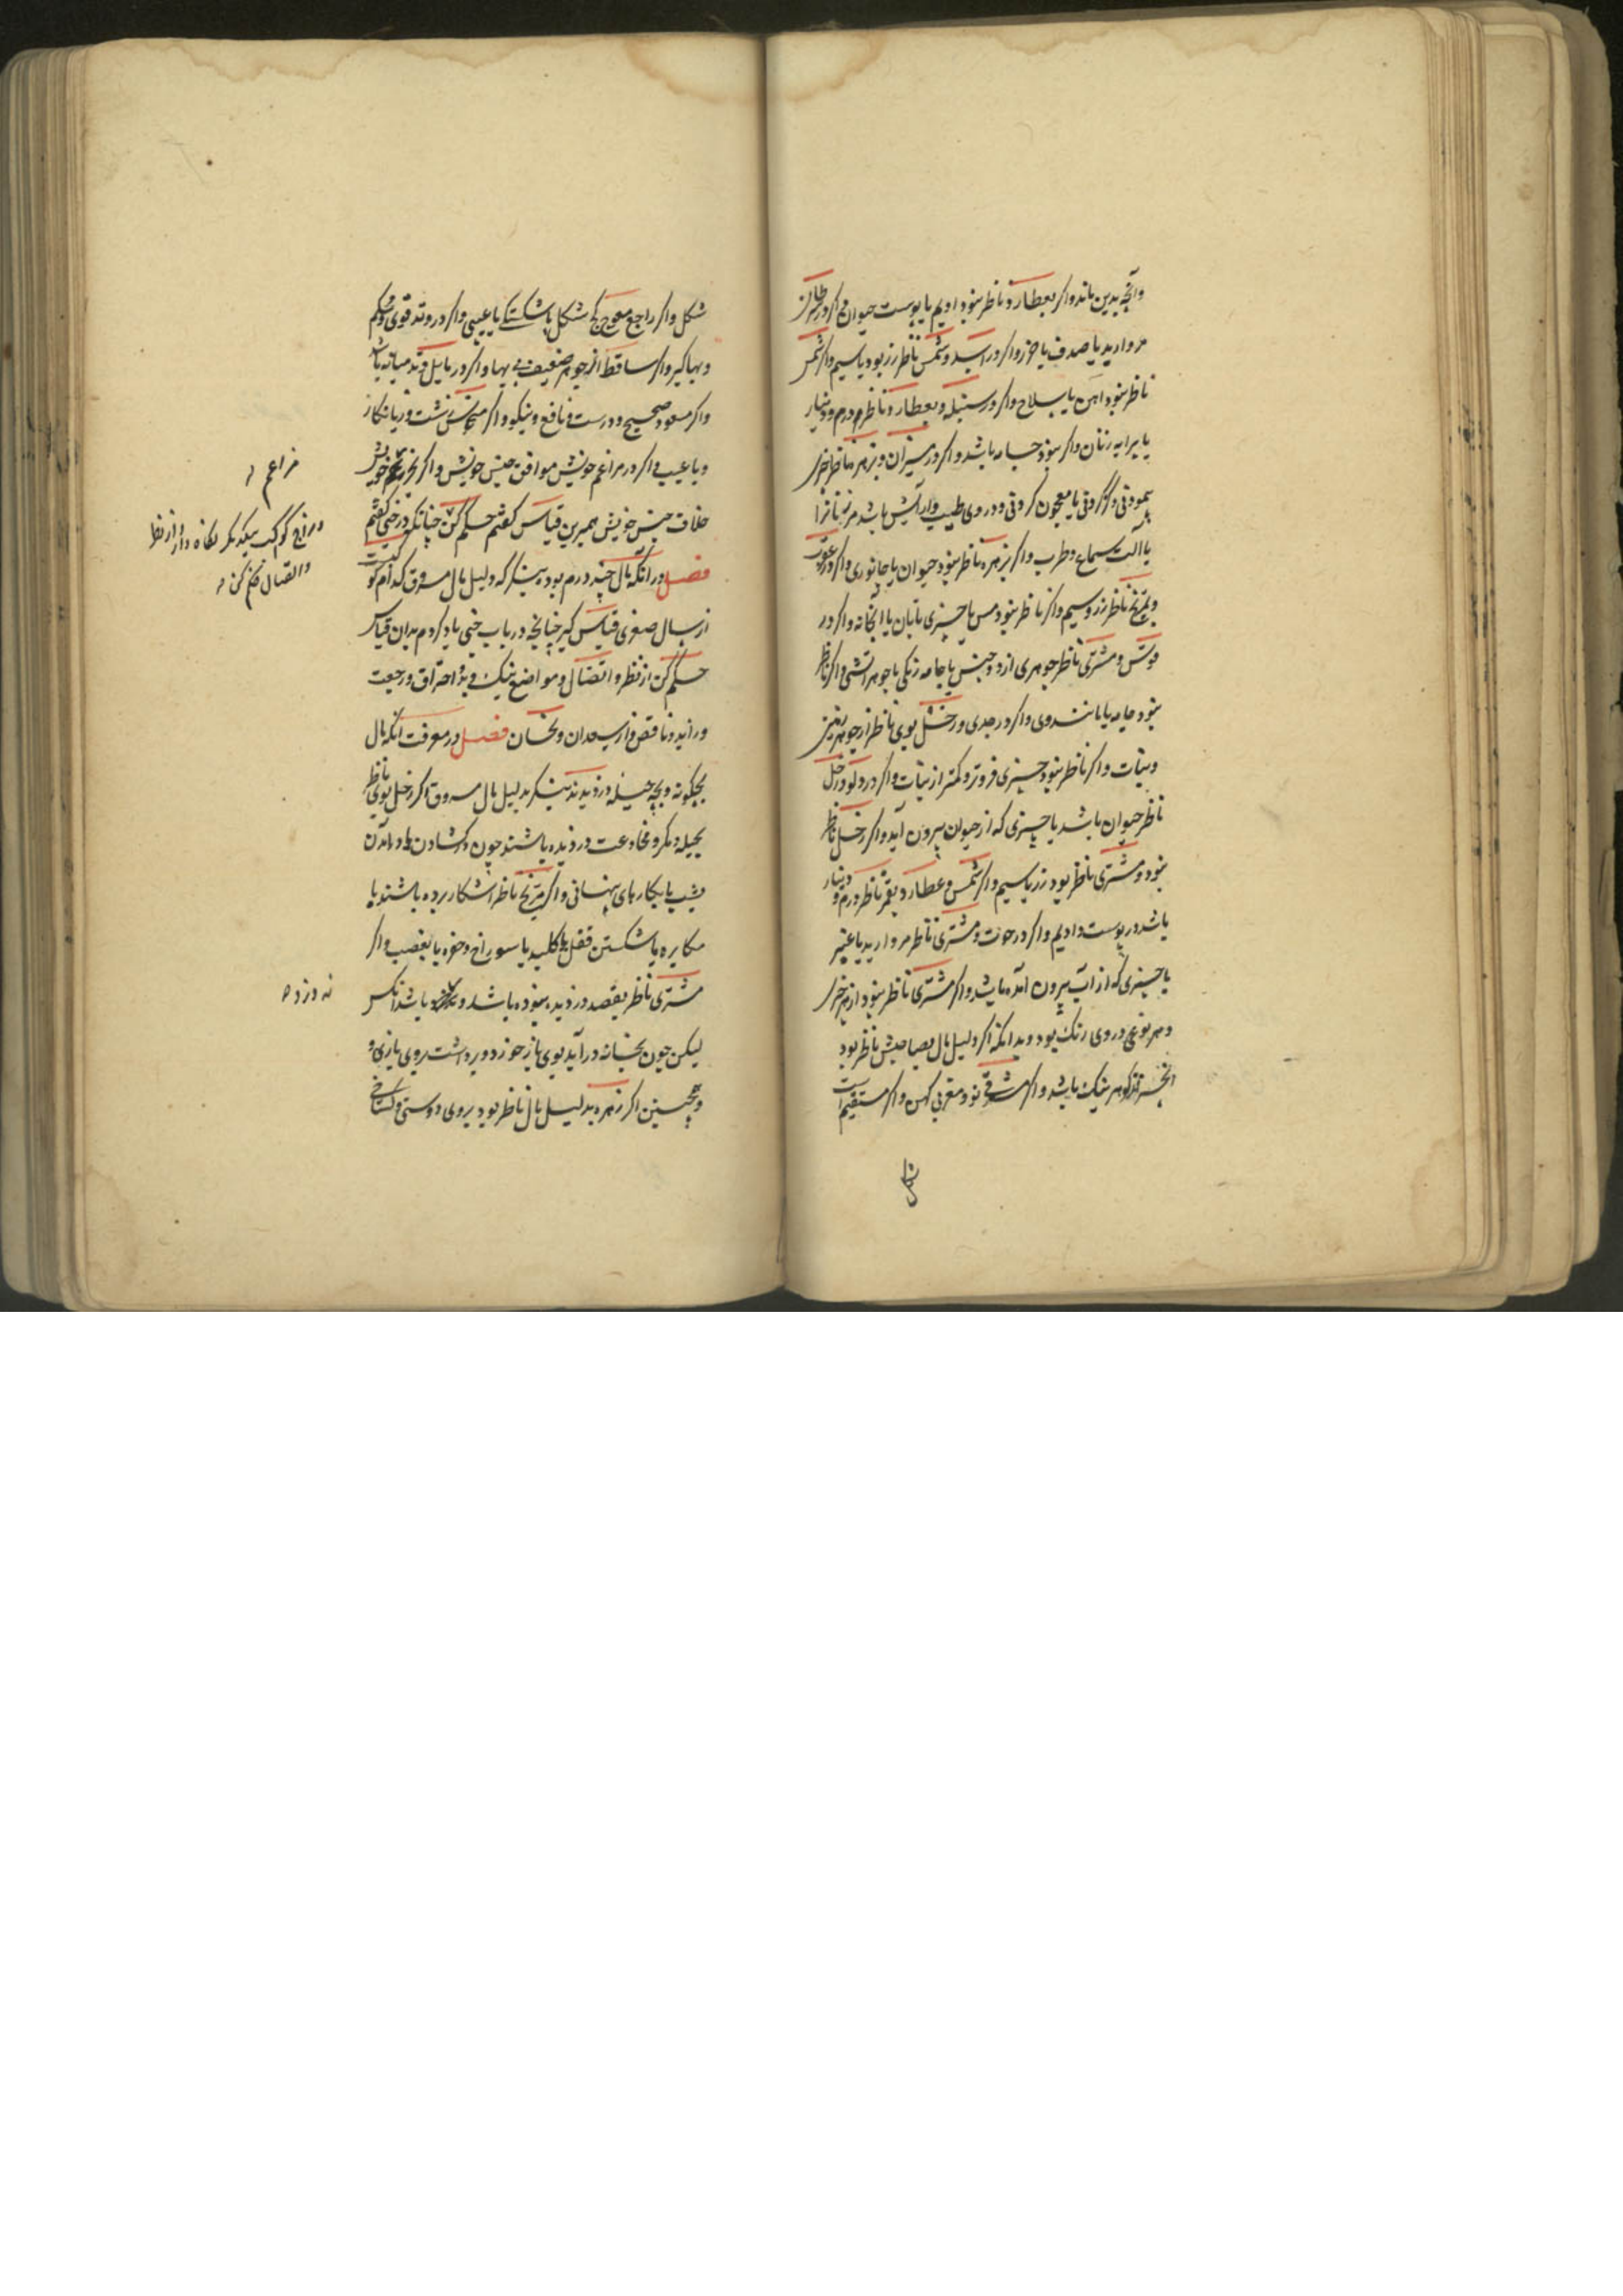 وآنچه بدین ماند واکر بعطارد ناظر نبود ادیم یا پوست حیوان واکر در سرطان
مروارید یا صدف یا خرز واکر در اسد وشمس ناظر زر بود یا سیم واکر شمس
ناظر نبود آهن یا سلاح واکر در سنبله وبعطارد ناظر درم ودینار
یا پیرایه زنان واکر نبود جامه باشد واکر در میزان وبزهره ناظر چیزی
کردنی ودر وی طیب وآرایش باشد مر زنانرا
یا آلت سماع وطرب واکر بزهره ناظر نبود حیوان یا جانوری واکر در عقرب
وبمریخ ناظر زر وسیم واکر ناظر نبود مس یا چیزی تابان یا واکر در
قوس ومشتری ناظر جوهری از دو جنس یا جامه رنکی یا جوهر آتشی واکر ناظر
نبود جامه یا مانند وی واکر در جدی وزحل بوی ناظر از جوهر زمین
ونبات واکر ناظر نبود چیزی فروتر وکمتر از نبات واکر در دلو وزحل
ناظر حیوان باشد یا چیزی که از حیوان بیرون آید واکر زحل ناظر
نبود ومشتری ناظر بود زر یا سیم واکر شمس وعطارد بقمر ناظر درم ودینار
باشد در پوست وادیم واکر در حوت ومشتری ناظر مروارید یا عنبر
یا چیزی که از آب بیرون آمده باشد واکر مشتری ناظر نبود از هر چیزی
وهر نوعی در وی رنک بود وبدانکه اکر دلیل مال بصاحبش ناظر بود
آنچیز کوهر نیک باشد واکر مشرقی نو ومغربی کهن واکر مستقیم راست
شکل
شکل واکر راجع معوج کج شکل یا شکستکی یا عیبی واکر در وتد قوی ومحکم
وبهاکیر واکر ساقط از جوهر ضعیف بی بها واکر در مایل وتد میانه باشد
واکر مسعود صحیح ودرست ونافع ونیکو واکر منحس زشت وزیانکار
وبا عیب واکر در مراغم خویش موافق جنس خویش واکر خویش
خلاف جنس خویش همبرین قیاس کفتم حکم کن چنانکه در خبی کفتم
فصل در آنکه مال چند درم بود بنکر که دلیل مال مسروق کدام کوکبست
از سال صغری قیاس کیر چنانچه در باب خبی یاد کردم بدان قیاس
حکم کن از نظر واتصال ومواضع نیک وبد واحتراق ورجعت
وزاید وناقص واز سعدان ونحسان فصل در معرفت آنکه مال
بچکونه وبچه حیله دزدیدند بنکر بدلیل مال مسروق اکر زحل بوی ناظر
بحیله ومکر ومخادعت دزدیده باشند چون درکشادن ها ودرآمدن
بشب یا بکارهای پنهانی واکر مریخ ناظر آشکار برده باشند یا
مکابره یا شکستن قفل یا کلید یا سوراخ وحفره یا بغصب واکر
مشتری ناظر بقصد دزدیده نبوده باشد باشد آنکس
لیکن چون بخانه درآید بوی باز خورد وبرداشت بروی بازی و
وهمچنین اکر زهره بدلیل مال ناظر بود بروی دوستی وکستاخی
مراغم
کوکب بیکدیکر نکاه دار از نظر
واتصال حکم کن
نه دزد